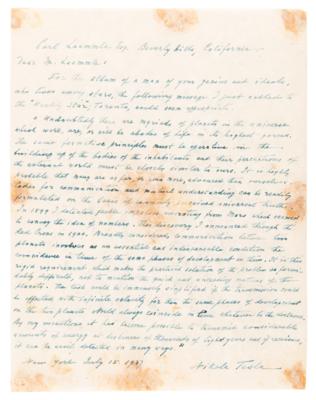 Carl Laemmle Esq. Beverly Hills California.
Dear Mr. Laemmle:
For the album of a man of your genius and ideals,
who lives among stars, the following message I just cabled to
the "Weekly Star", Toronto, could seem appropriate:
"Undoubtedly there are myriads of planets in the universe
which were, are, or will be abodes of life in its highest forms.
The same formative principles must be operative in the
building up of the bodies of the inhabitants and their perceptions of
the external world must be closely similar to ours. It is highly
probable that many are as far, or even more, advanced than ourselves
for communication and mutual understanding can be readily
formulated on the basis of universal truths.
In 1899 I detected signals from Mars which seemed
to convey the idea of numbers. This discovery I announced through the
Red Cross in 1900. communication between two
planets involves as an essential and indispensable condition the
coincidence in time of the same phases of development on both. It is this
rigid requirement which makes the practical solution of the problem so formi-
dably difficult, not to mention the quick and unceasing motions of the
planets. The task would be immensely simplified if the transmission could
be effected with infinite velocity for then the same phases of development
on the two planets would always coincide in time whatever be the distance.
By my inventions it has become possible to transmit considerable
amounts of energy at distances of thousands of light years and if received,
it can be made detected in many ways"
New York July 15 1937 Nikola Tesla